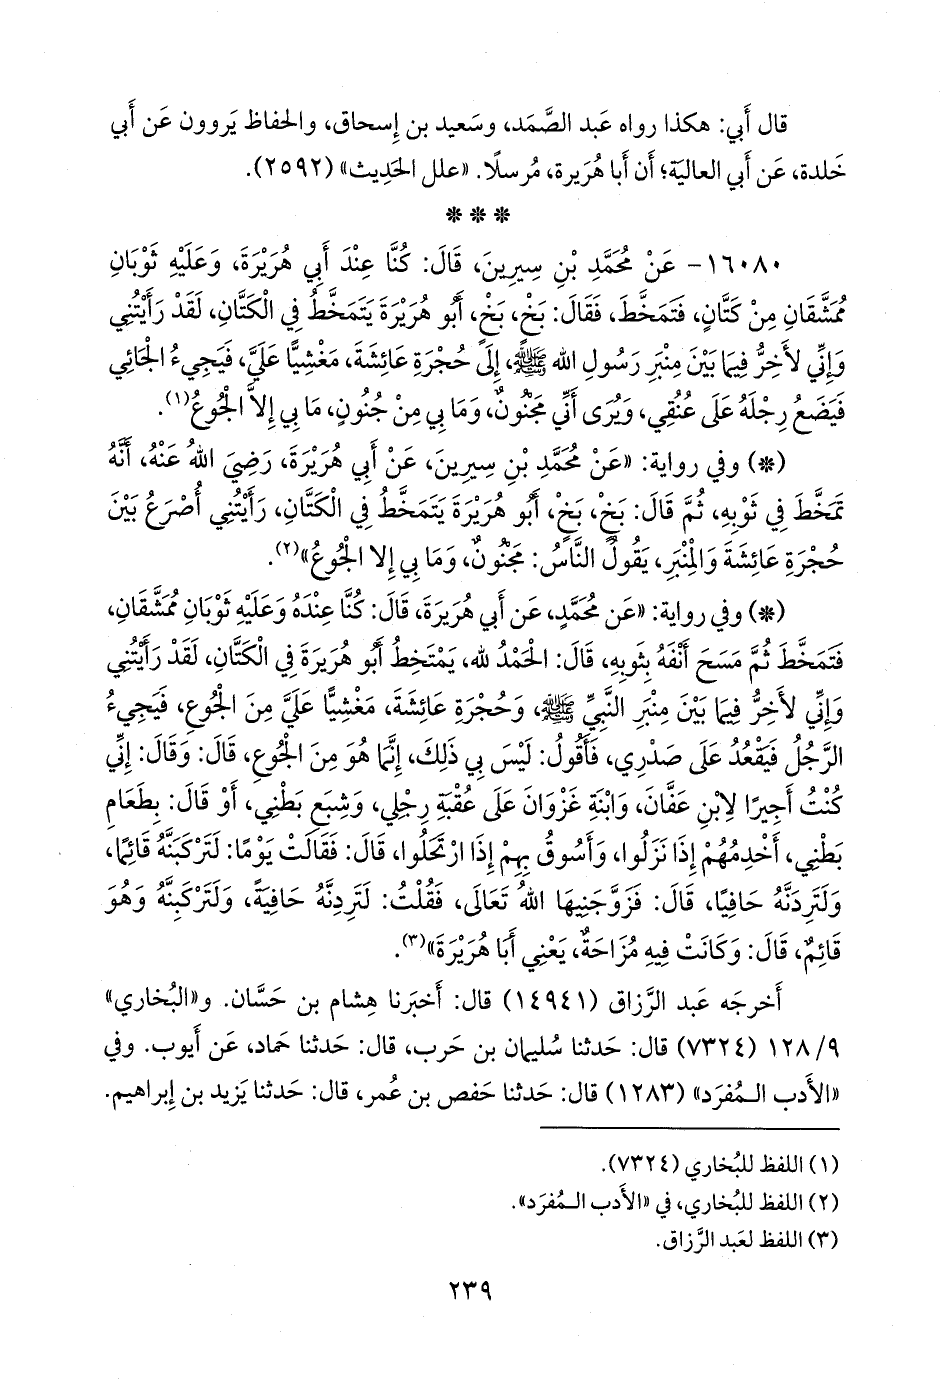 قال أَبي: هكذا رواه عَبد الصَّمَد، وسَعيد بن إِسحاق، والحفاظ يَروون عَن أَبي
خَلدة، عَن أَبي العالية؛ أَن أَبا هُرَيرة، مُرسلًا. «علل الحَديث» (٢٥٩٢).
* * *
١٦٠٨٠- عَنْ مُحَمَّدِ بْنِ سِيرِينَ، قَالَ: كُنَّا عِنْدَ أَبِي هُرَيْرَةَ، وَعَلَيْهِ ثَوْبَانِ
مُمَشَّقَانِ مِنْ كَتَّانٍ، فَتَمَخَّطَ، فَقَالَ: بَخْ، بَخْ، أَبُو هُرَيْرَةَ يَتَمَخَّطُ فِي الْكَتَّانِ، لَقَدْ رَأَيْتُنِي
وَإِنِّي لأَخِرُّ فِيمَا بَيْنَ مِنْبَرِ رَسُولِ الله ﷺ، إِلَى حُجْرَةِ عَائِشَةَ، مَغْشِيًّا عَلَيَّ، فَيَجِيءُ الْجَائِي
فَيَضَعُ رِجْلَهُ عَلَى عُنُقِي، وَيُرَى أَنِّي مَجْنُونٌ، وَمَا بِي مِنْ جُنُونٍ، مَا بِي إِلاَّ الْجُوعُ(١).
(*) وفي رواية: «عَنْ مُحَمَّدِ بْنِ سِيرِينَ، عَنْ أَبِي هُرَيْرَةَ، رَضِيَ اللهُ عَنْهُ، أَنَّهُ
تَمَخَّطَ فِي ثَوْبِهِ، ثُمَّ قَالَ: بَخْ، بَخْ، أَبُو هُرَيْرَةَ يَتَمَخَّطُ فِي الْكَتَّانِ، رَأَيْتُنِي أُصْرَعُ بَيْنَ
حُجْرَةِ عَائِشَةَ وَالْمِنْبَرِ، يَقُولُ النَّاسُ: مَجْنُونٌ، وَمَا بِي إِلا الْجُوعُ»(٢).
(*) وفي رواية: «عَن مُحَمَّدٍ، عَن أَبي هُرَيْرَةَ، قَالَ: كُنَّا عِنْدَهُ وَعَلَيْهِ ثَوْبَانِ مُمَشَّقَانِ،
فَتَمَخَّطَ ثُمَّ مَسَحَ أَنْفَهُ بِثَوبِهِ، قَالَ: الْحَمْدُ لله، يَمْتَخِطُ أَبُو هُرَيْرَةَ فِي الْكَتَّانِ، لَقَدْ رَأَيْتُنِي
وَإِنِّي لأَخِرُّ فِيمَا بَيْنَ مِنْبَرِ النَّبِيِّ ﷺ، وَحُجْرَةِ عَائِشَةَ، مَغْشِيًّا عَلَيَّ مِنَ الْجُوعِ، فَيَجِيءُ
الرَّجُلُ فَيَقْعُدُ عَلَى صَدْرِي، فَأَقُولُ: لَيْسَ بِي ذَلِكَ، إِنَّمَا هُوَ مِنَ الْجُوعِ، قَالَ: وَقَالَ: إِنِّي
كُنْتُ أَجِيرًا لاِبْنِ عَفَّانَ، وَابْنَةِ غَزْوَانَ عَلَى عُقْبَةِ رِجْلِي، وَشِبَعِ بَطْنِي، أَوْ قَالَ: بِطَعَامِ
بَطْنِي، أَخْدِمُهُمْ إِذَا نَزَلُوا، وَأَسُوقُ بِهِمْ إِذَا ارْتَحَلُوا، قَالَ: فَقَالَتْ يَوْمًا: لَتَرْكَبَنَّهُ قَائِمًا،
وَلَتَرِدَنَّهُ حَافِيًا، قَالَ: فَزَوَّجَنِيهَا اللهُ تَعَالَى، فَقُلْتُ: لَتَرِدِنَّهُ حَافِيَةً، وَلَتَرْكَبِنَّهُ وَهُوَ
قَائِمٌ، قَالَ: وَكَانَتْ فِيهِ مُزَاحَةٌ، يَعْنِي أَبَا هُرَيْرَةَ»(٣).
أَخرجَه عَبد الرَّزاق (١٤٩٤١) قال: أَخبَرنا هِشام بن حَسَّان. و«البُخاري»
٩/ ١٢٨ (٧٣٢٤) قال: حَدثنا سُليمان بن حَرب، قال: حَدثنا حَماد، عَن أَيوب. وفي
«الأَدب الـمُفرَد» (١٢٨٣) قال: حَدثنا حَفص بن عُمر، قال: حَدثنا يَزيد بن إِبراهيم.
(١) اللفظ للبُخاري (٧٣٢٤).
(٢) اللفظ للبُخاري، في «الأَدب الـمُفرَد».
(٣) اللفظ لعَبد الرَّزاق.
٢٣٩